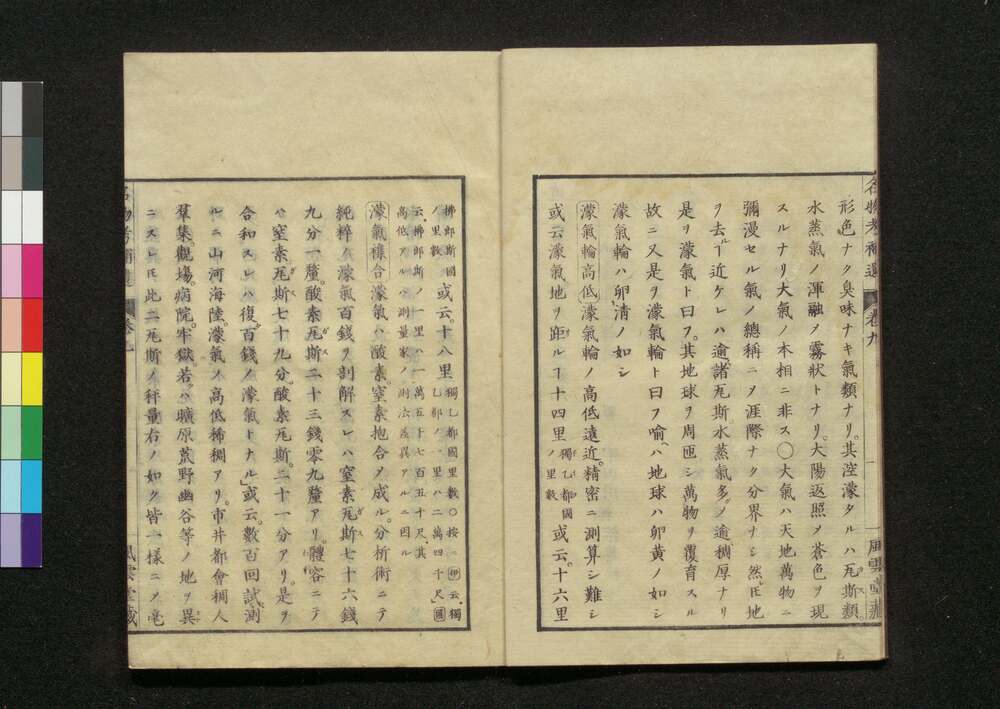 形色ナク臭味ナキ氣類ナリ。其涳濛タルハ瓦斯類。
水蒸氣ノ渾融ノ霧狀トナリ。大陽返照ノ蒼色ヲ現
スルナリ大氣ノ本相ニ非ス〇大氣ハ天地萬物ニ
彌漫セル氣ノ總稱ニノ涯際ナク分界ナシ然𪜈地
ヲ去ル近ケレハ逾諸瓦斯水蒸氣多ノ逾稠厚ナリ
是ヲ濛氣ト曰フ。其地球ヲ周匝シ萬物ヲ覆育スル
故ニ又是ヲ濛氣輪ト曰フ喻ハ地球ハ卵黄ノ如シ
濛氣輪ハ卵淸ノ如シ
濛氣輪高低 濛氣輪ノ高低遠近。精密ニ測算シ難シ
或云濛氣地ヲ距ルヿ十四里 獨乙都國ノ里數 或云。十六里
名物考補遺 卷九 一 風雲堂藏
拂郎斯國ノ里數 或云。十八里 獨乙都國里數〇按ニ伊云獨乙都ノ一里ハ二萬四千尺圖
云拂郎斯ノ一里ハ一萬五千七百五十尺其
高低アルハ測量家ノ測法差異アルニ因ル
濛氣襍合 濛氣ハ酸素。窒素抱合ノ成ル。分析術ニテ
純粹ノ濛氣百錢ヲ剖解スレハ窒素瓦斯七十六錢
九分一釐。酸素瓦斯二十三錢零九釐アリ。體容ニテ
ハ窒素瓦斯七十九分。酸素瓦斯二十一分アリ。是ヲ
合和スレハ復百錢ノ濛氣トナル 或云。數百回試測
ルニ山河海陸。濛氣ノ高低稀稠アリ。市井都會稠人
羣集。觀場。病院。牢獄。若ハ曠原荒野幽谷等ノ地ヲ異
ニスレ𪜈此二瓦斯ノ秤量右ノ如ク皆一樣ニノ毫